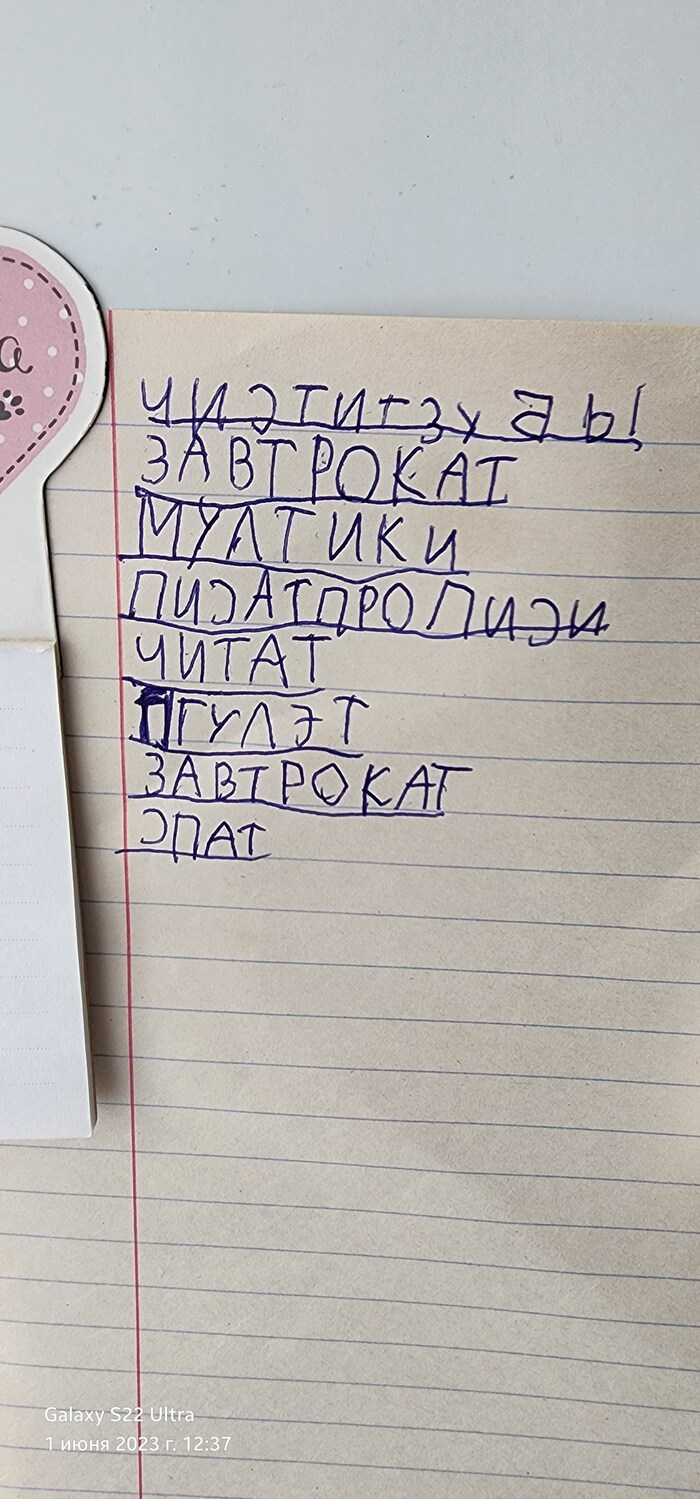 а
ЧИЭТИТЗУБЫ
ЗАВТРОКАТ
МУЛТИКИ
ПИЭАТПРОПИЭИ
ЧИТАТ
ГУЛЭТ
ЗАВТРОКАТ
ЭПАТ
Galaxy S22 Ultra
1 июня 2023 г. 12:37